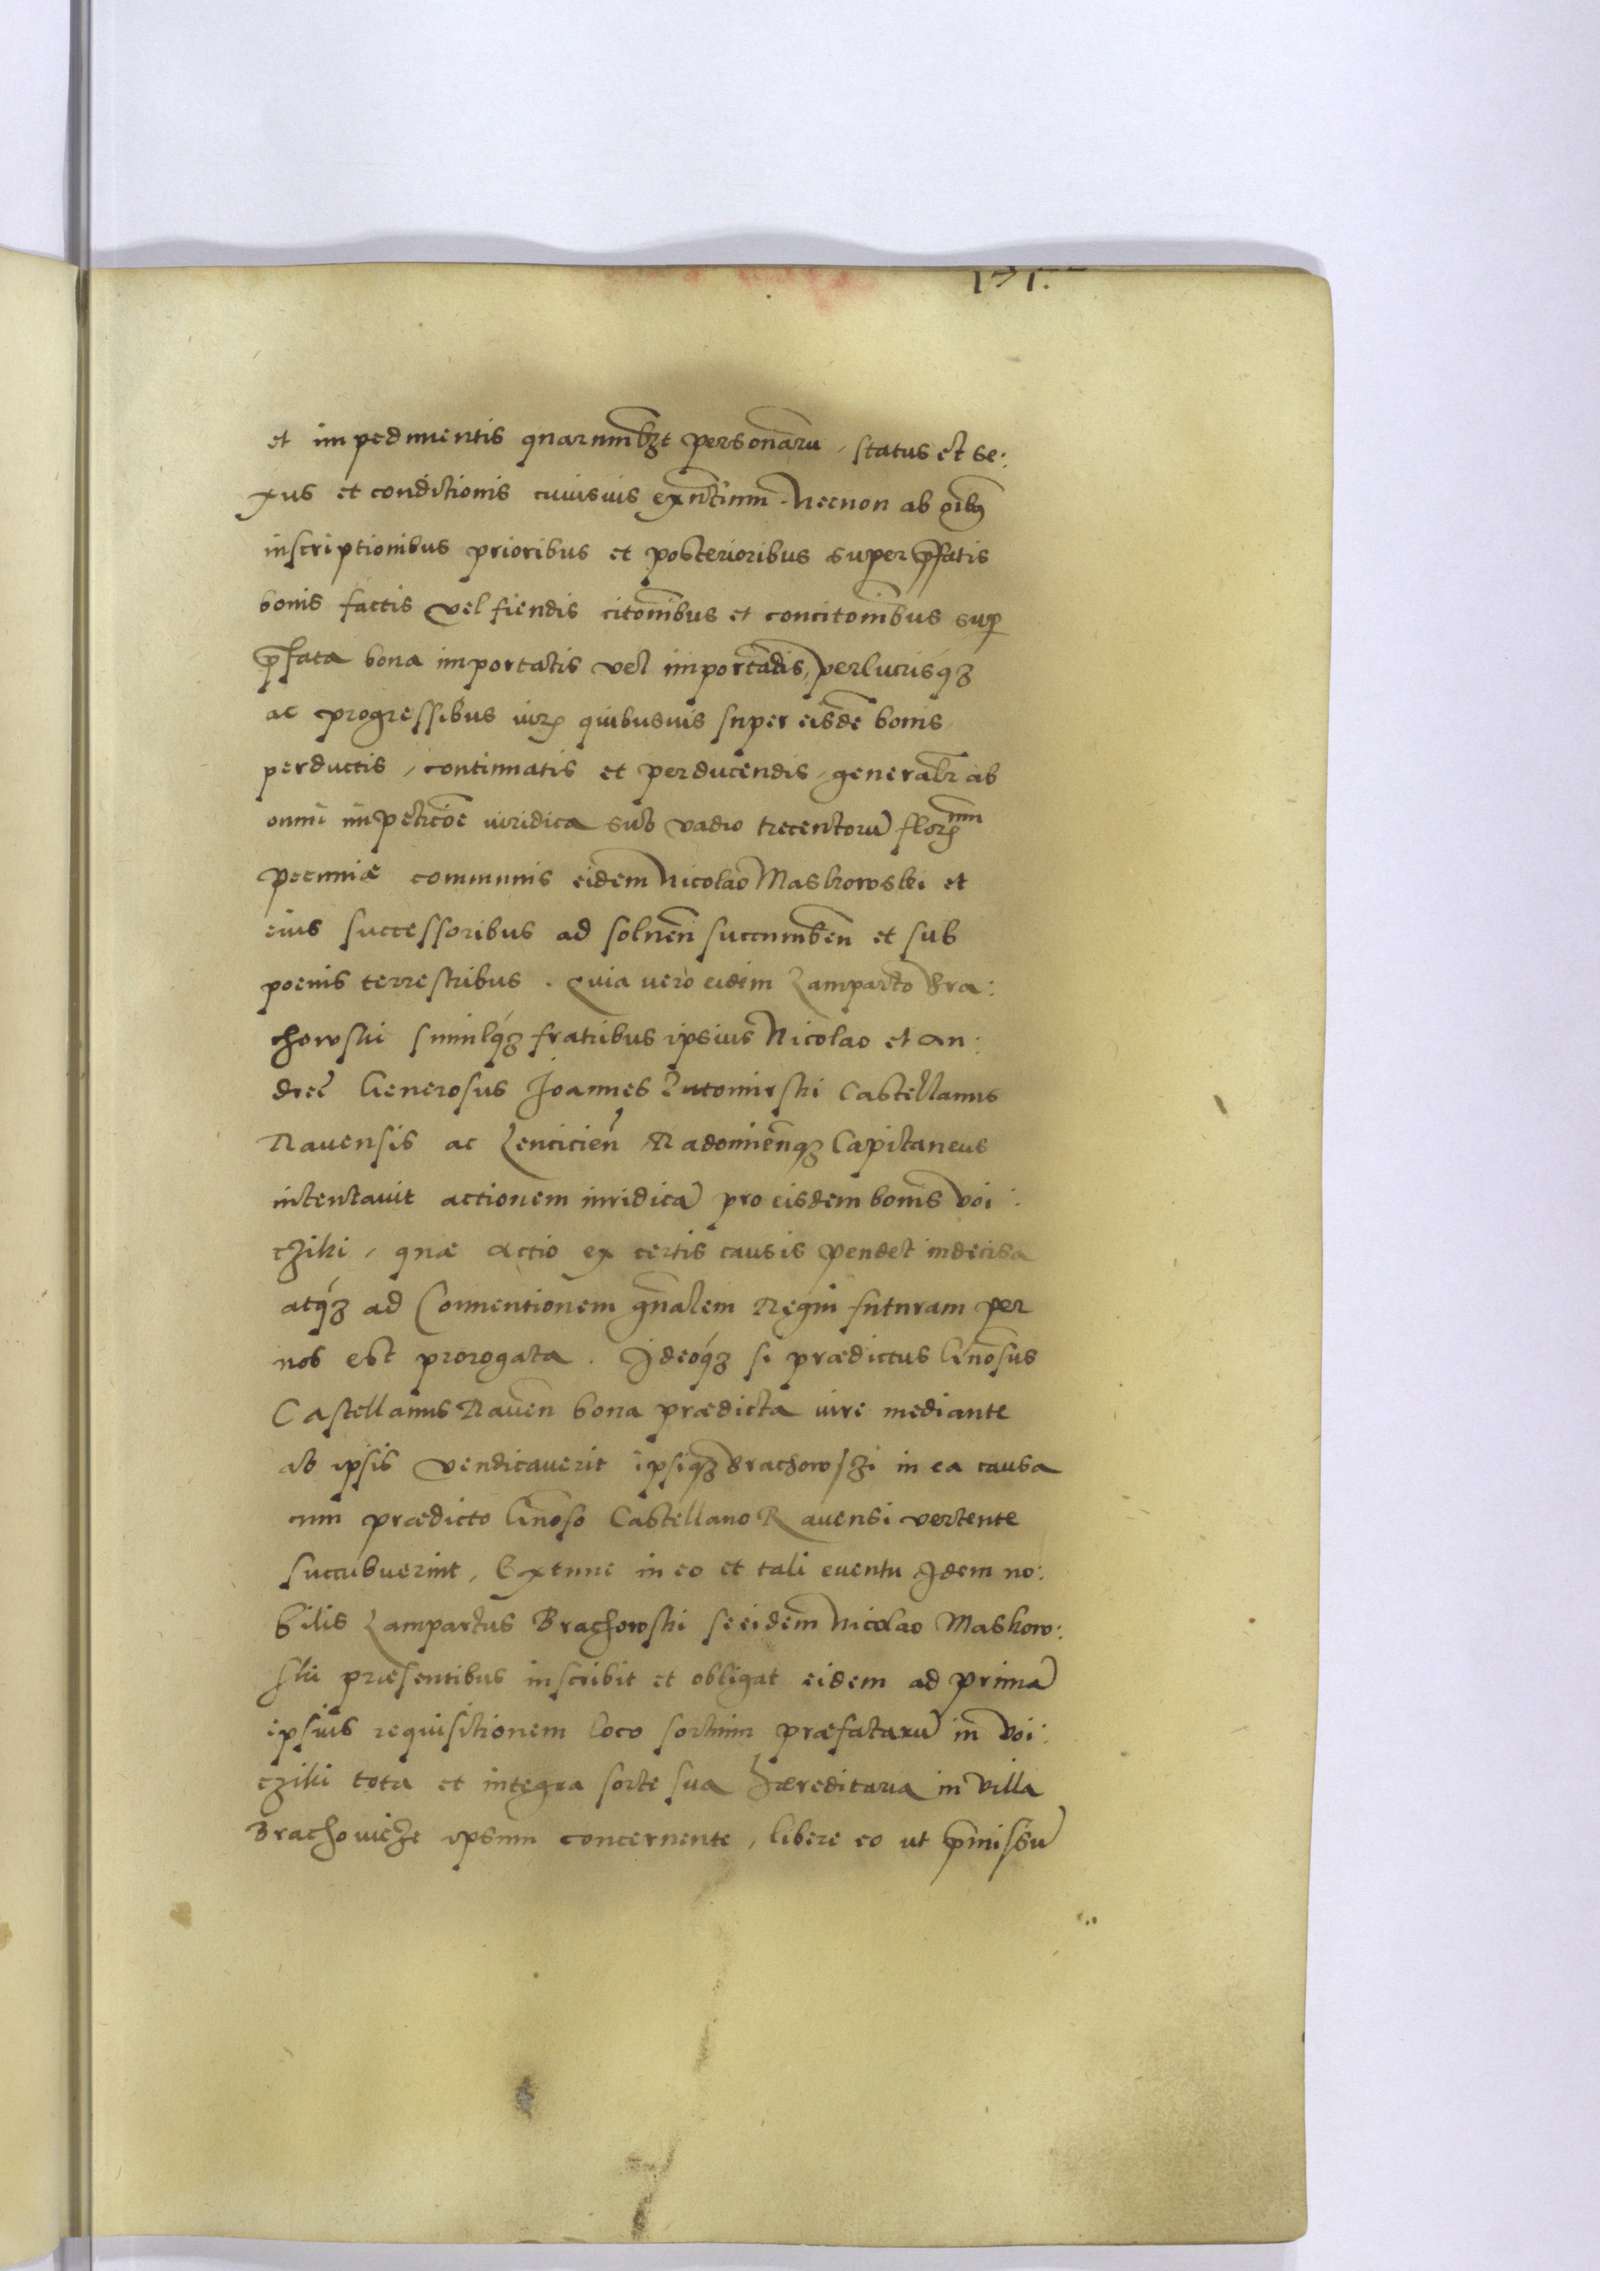 171.
et impedimentis quarumlibꝫt personarũ, status et se:
xus et conditionis cuiusvis exñtium. Necnon ab oĩbꝫ
inscriptionibus prioribus et posterioribus super p̃fatis
bonis factis vel fiendis citoñibus et concitoñibus sup̱
p̃fata bona importatis vel importãdis, perlucrisqꝫ
ac progressibus iurꝭ quibusvis super eisdẽ bonis
perductis, continuatis et perducendis, generalr̃ ab
omni impeticõe iuridica sub vadio trecentorũ florꝭnm
pecuniæ communis eidem Nicolao Maskowski et
eius successoribus ad solueñ succumbeñ et sub
poenis terrestribus. Quia vero eidem Lamparto Bra:
chowski similqꝫ fratribus ipsius Nicolao et An:
dreę Generosus Joannes Lutomirski Castellanus
Ravensis ac Lencicieñ Radomieñqꝫ Capitaneus
intentavit actionem iuridicã pro eisdem bonis Voi:
cziki, quæ actio ex certis causis pendet indecisa
atqꝫ ad Conventionem gñalem Regni futuram per
nos est prorogata. Ideoqꝫ si prædictus Gñosus
Castellanus Raveñ bona prædicta iure mediante
ab ipsis vendicaverit ipsiqꝫ Brachowsʒi in ea causa
cum prædicto Gñoso Castellano Ravensi vertente
succubuerint, Extunc in eo et tali eventu Idem no:
bilis Lampartus Brachowski se eidem Nicolao Maskow:
ski præsentibus inscribit et obligat eidem ad primã
ipsius requisitionem loco sortium præfatarũ in Voi:
cziki tota et integra sorte sua hæreditaria in Villa
Brachovicze ipsum concernente, libere eo ut p̃missũ